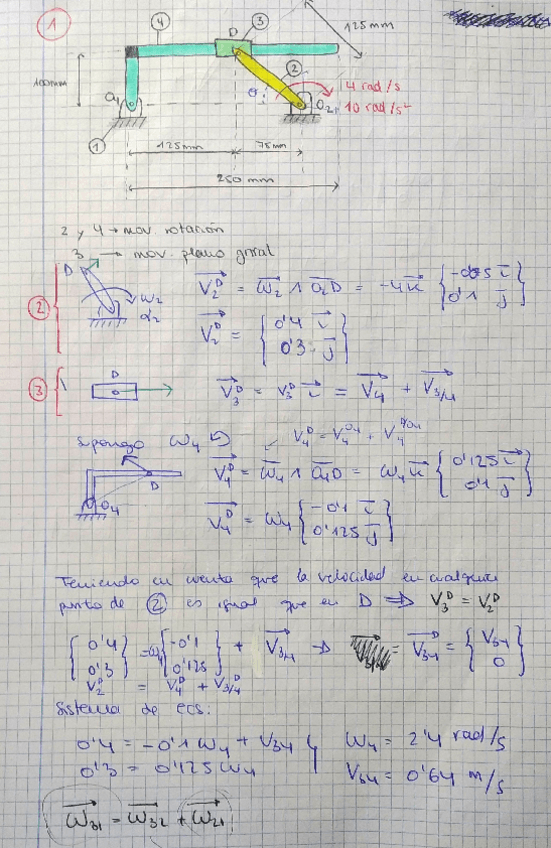 1
4
D
3
125mm
100mm
2
θ
4 rad/s
10 rad/s²
O₄
O₂
1
125mm
75mm
250 mm
2 y 4 → mov. rotación
3 → mov. plano gnral
2
D
ω₂
α₂
V₂ᴰ = ω₂ ∧ O₂D = -4k {-0'075 i
0'1 j}
V₂ᴰ = {0'4 i
0'3 j}
3
D
V₃ᴰ = V₃ᴰ i = V₄ + V₃/₄
Supongo ω₄ ↺
V₄ᴰ = V₄ᴼ⁴ + V₄ᴰ/ᴼ⁴
D
O₄
V₄ᴰ = ω₄ ∧ O₄D = ω₄ k {0'125 i
0'1 j}
V₄ᴰ = ω₄ {-0'1 i
0'125 j}
Teniendo en cuenta que la velocidad en cualquier
punto de 2 es igual que en D ⇒ V₃ᴰ = V₂ᴰ
{0'4
0'3} = ω₄ {-0'1
0'125} + V₃/₄ → V₃₄ = {V₃₄
0}
V₂ᴰ = V₄ᴰ + V₃/₄ᴰ
Sistema de ecs:
0'4 = -0'1 ω₄ + V₃₄
0'3 = 0'125 ω₄
ω₄ = 2'4 rad/s
V₃₄ = 0'64 m/s
ω₃₁ = ω₃₂ + ω₂₁